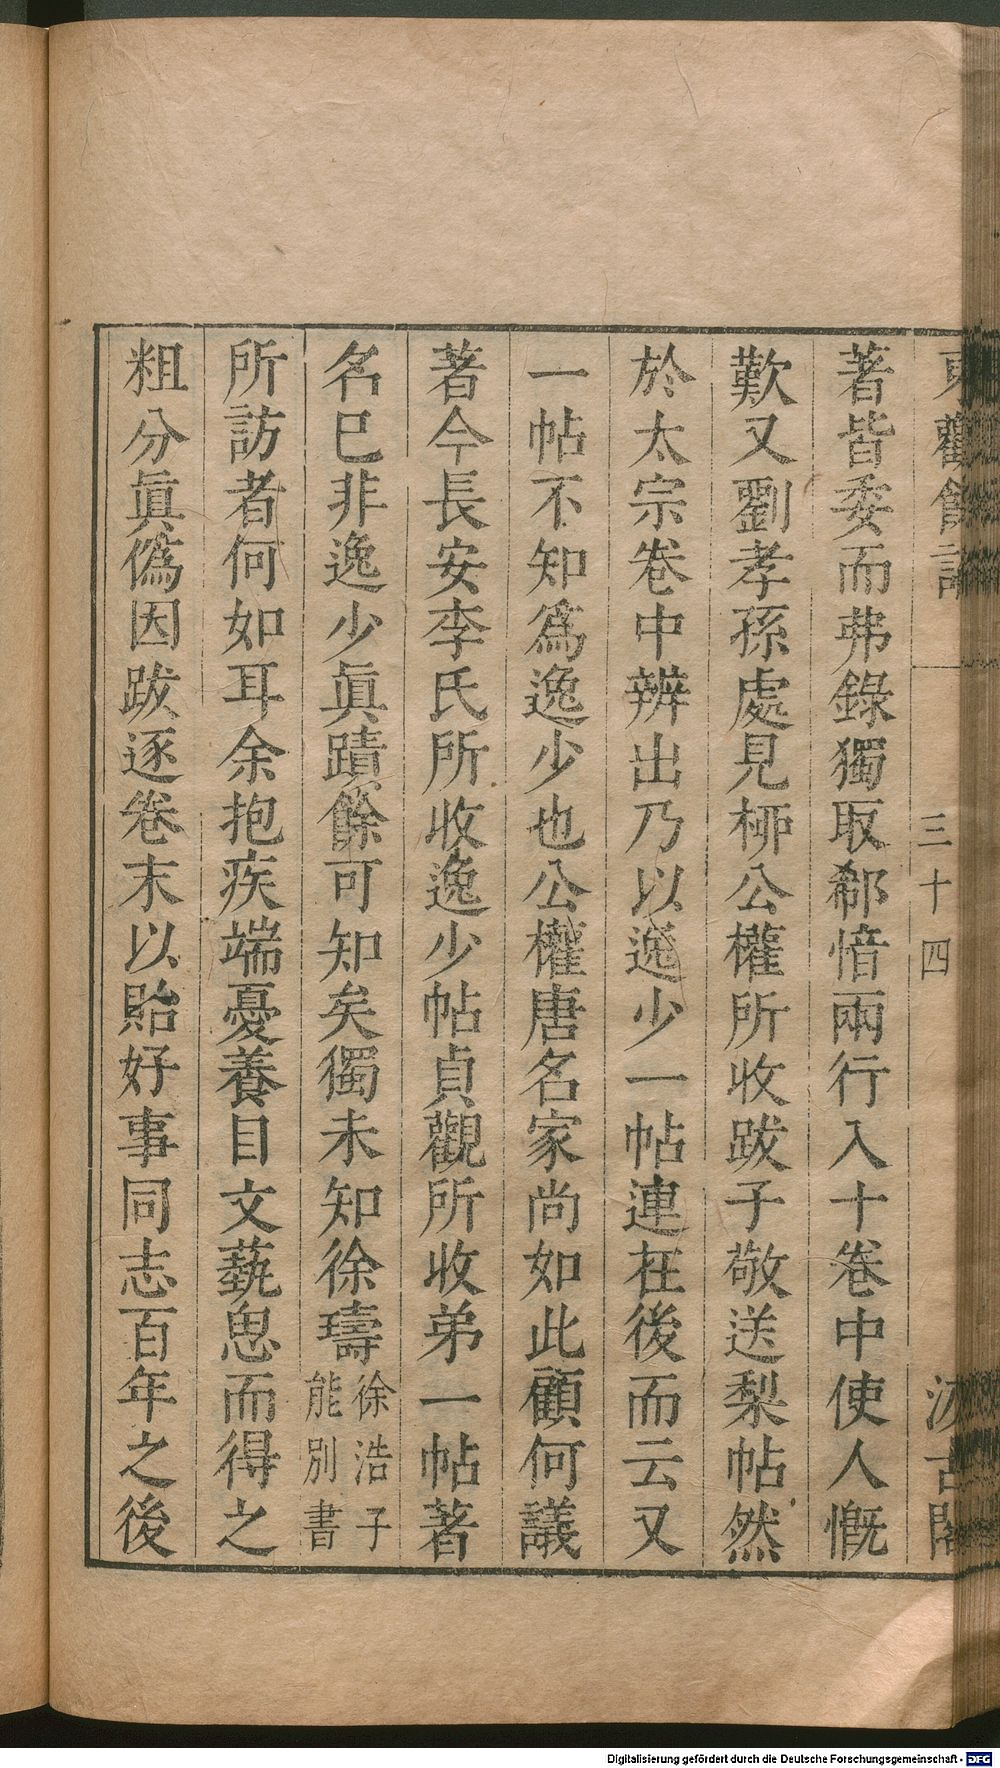 東觀餘論
三十四
汲古閣
著皆委而弗錄獨取郗愔兩行入十卷中使人慨
歎又劉孝孫處見桺公權所收跋子敬送梨帖然
於太宗卷中辨出乃以逸少一帖連在後而云又
一帖不知爲逸少也公權唐名家尚如此顧何議
著今長安李氏所收逸少帖貞觀所收弟一帖著
名巳非逸少眞蹟餘可知矣獨未知徐璹徐浩子能別書
所訪者何如耳余抱疾端憂養目文藝思而得之
粗分眞僞因跋逐卷末以貽好事同志百年之後
Digitalisierung gefördert durch die Deutsche Forschungsgemeinschaft - DFG